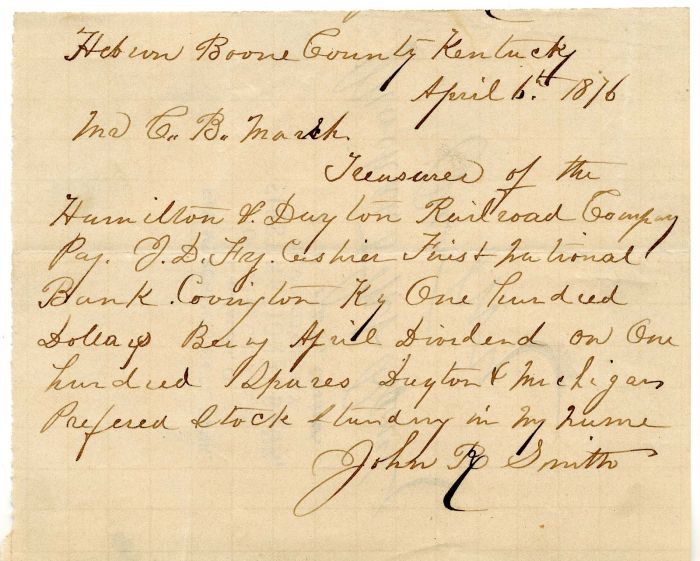 Hebron Boone County Kentucky
April 6th. 1876
Mr C. B. Marsh
Treasurer of the
Hamilton & Dayton Railroad Company
Pay. J. D. Fry. Cashier First National
Bank. Covington Ky One hundred
Dollars Being April Dividend on One
hundred Shares Dayton & Michigan
Prefered Stock Standing in My name
John R Smith